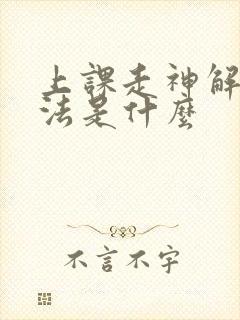 上課走神解
法是什麼
不言不字